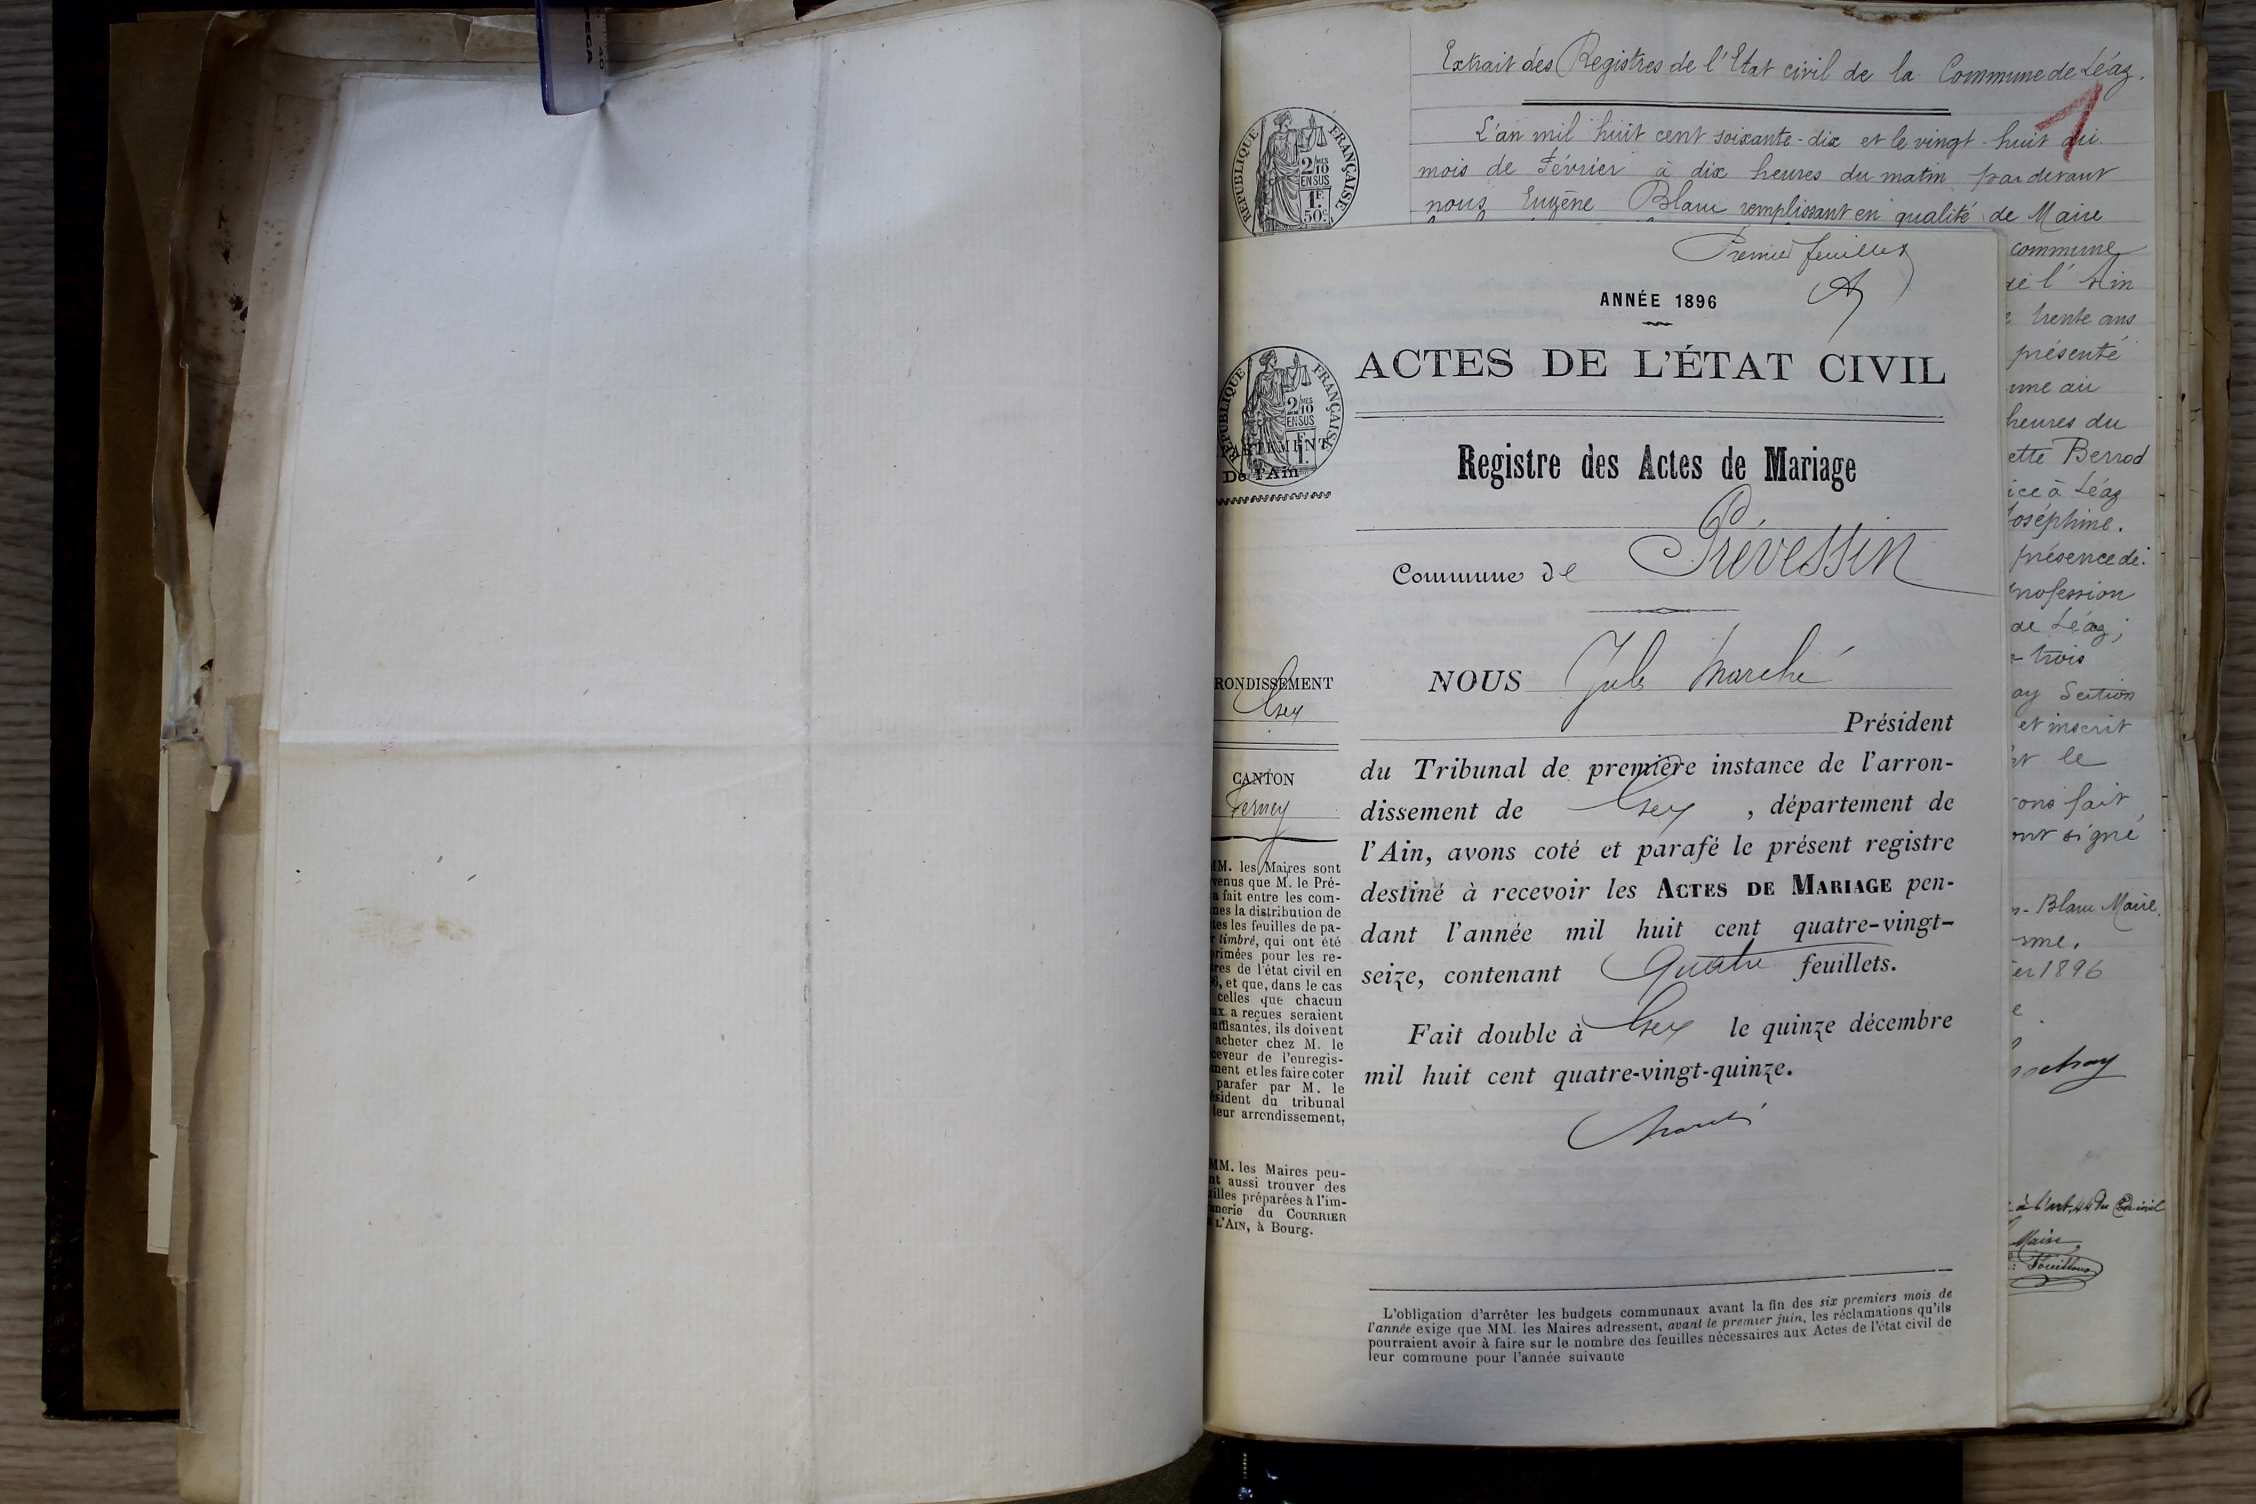 Extrait des Registres de l'Etat civil de la Commune de Léaz.
L'an mil huit cent soixante-dix et le vingt-huit du
mois de Février à dix heures du matin par devant
nous Eugène Blanc remplissant en qualité de Maire
RÉPUBLIQUE FRANÇAISE
2/10 MES
EN SUS
1F.
50c.
commune
de l'Ain
trente ans
présenté
heures du
ette Berrod
ice à Léaz
Joséphine.
présence de
profession
de Léaz;
trois
ay Section
et inscrit
le
ons fait
ont signé
Blanc Maire.
er 1896
à l'art. 44 du Code civil
Maire,
Premier feuillet
ANNÉE 1896
ACTES DE L'ÉTAT CIVIL
Registre des Actes de Mariage
Commune de Prévessin
NOUS Jules Marché
Président
du Tribunal de première instance de l'arron-
dissement de Gex, département de
l'Ain, avons coté et parafé le présent registre
destiné à recevoir les ACTES DE MARIAGE pen-
dant l'année mil huit cent quatre-vingt-
seize, contenant Quatre feuillets.
Fait double à Gex le quinze décembre
mil huit cent quatre-vingt-quinze.
Marché
L'obligation d'arrêter les budgets communaux avant la fin des six premiers mois de
l'année exige que MM. les Maires adressent, avant le premier juin, les réclamations qu'ils
pourraient avoir à faire sur le nombre des feuilles nécessaires aux Actes de l'état civil de
leur commune pour l'année suivante
RÉPUBLIQUE FRANÇAISE
2/10 MES
EN SUS
1F.
ARTEMENT
De l'Ain
RONDISSEMENT
Gex
CANTON
Ferney
MM. les Maires sont
venus que M. le Pré-
a fait entre les com-
nes la distribution de
tes les feuilles de pa-
r timbré, qui ont été
primées pour les re-
tres de l'état civil en
6, et que, dans le cas
celles que chacun
ux a reçues seraient
uffisantes, ils doivent
acheter chez M. le
ceveur de l'enregis-
ment et les faire coter
parafer par M. le
ésident du tribunal
leur arrondissement,
MM. les Maires peu-
nt aussi trouver des
illes préparées à l'im-
merie du COURRIER
L'AIN, à Bourg.